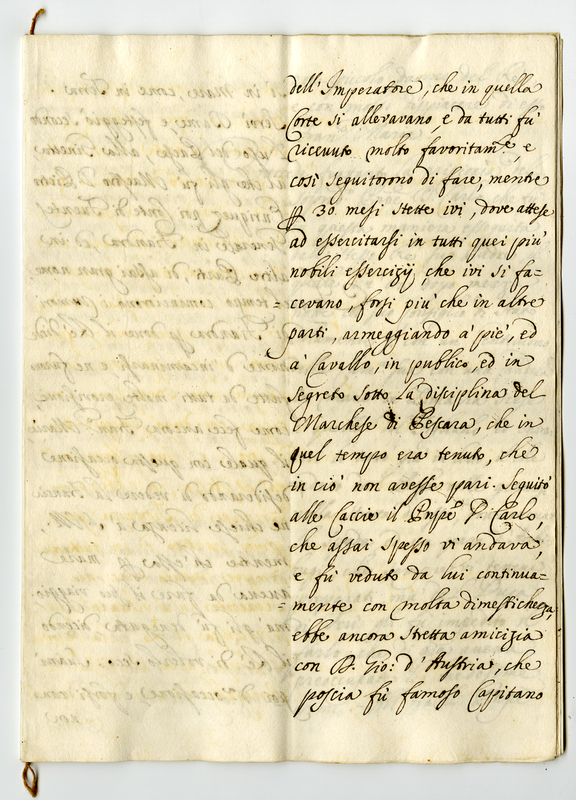 dell'Imperatore, che in quella
Corte si allevavano, e da tutti fù
ricevuto molto favoritam.e, e
così seguitorono di fare, mentre
ꝑ 30 mesi stette ivi, dove attese
ad essercitarsi in tutti quei più
nobili essercizij, che ivi si fa=
cevano, forsi più che in altre
parti, armeggiando à piè, ed
à Cavallo, in publico, ed in
segreto sotto la disciplina del
Marchese di Pescara, che in
quel tempo era tenuto, che
in ciò non avesse pari. Seguitò
alle Caccie il Pnpe D. Carlo,
che assai spesso vi andava,
e fù veduto da lui continua=
mente con molta dimestichezza,
ebbe ancora stretta amicizia
con D. Gio: d'Austria, che
poscia fù famoso Capitano